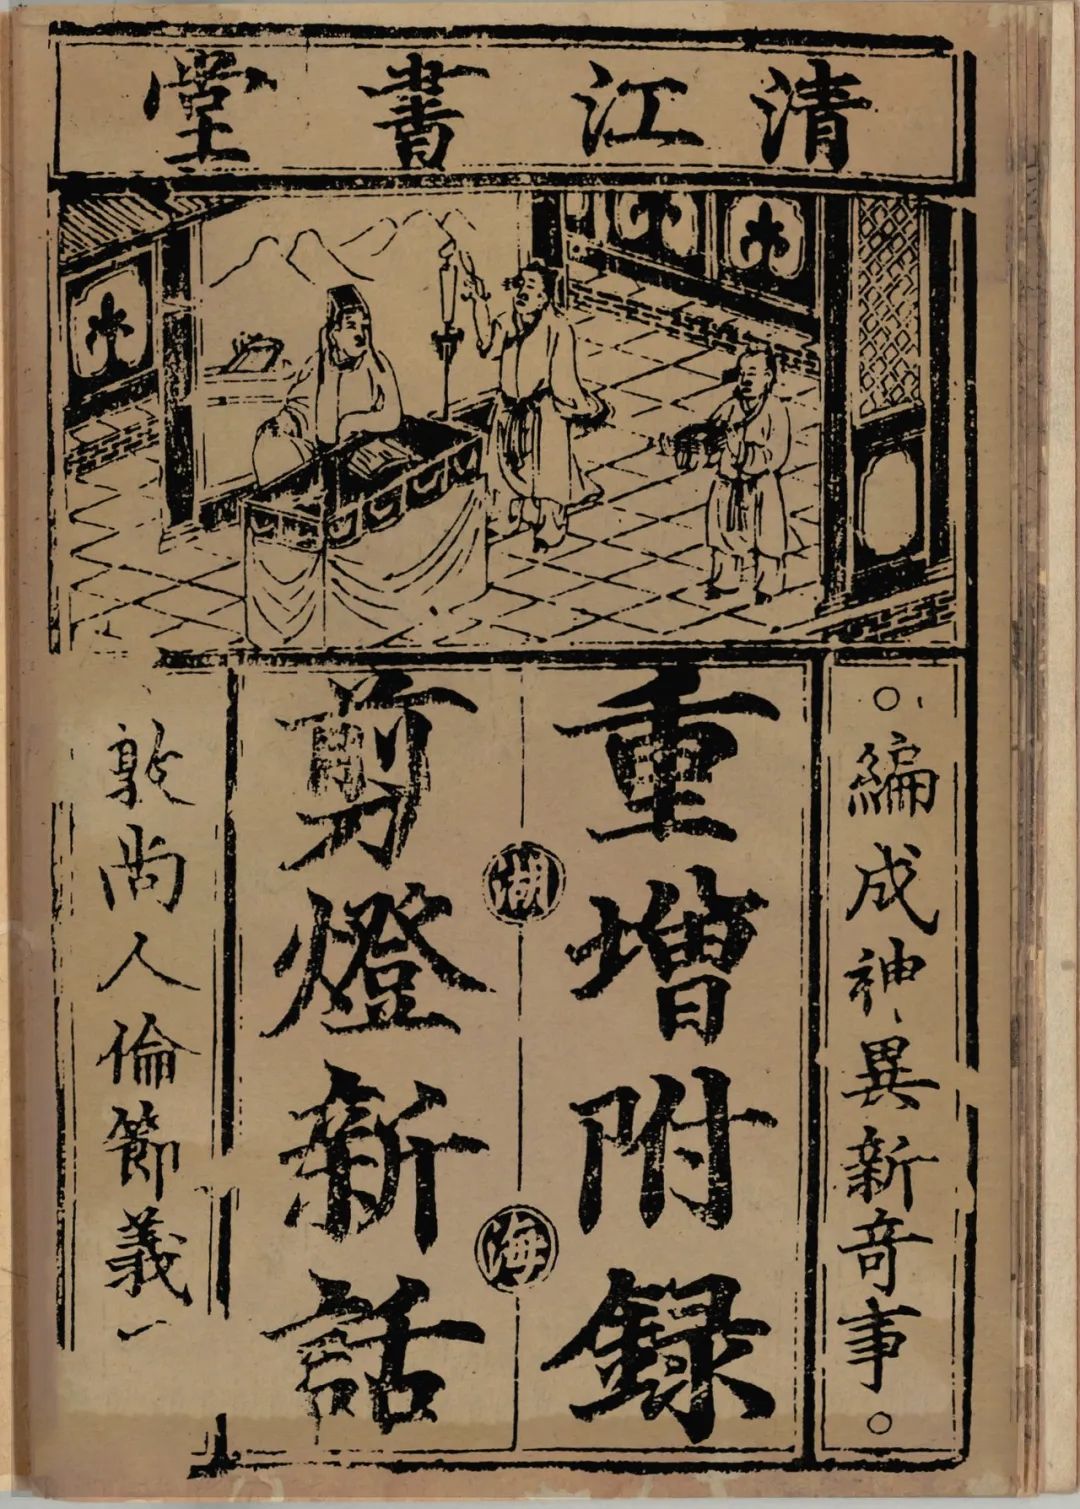 清江書堂
編成神異新奇事
重增附錄
湖海
剪燈新話
敦尚人倫節義